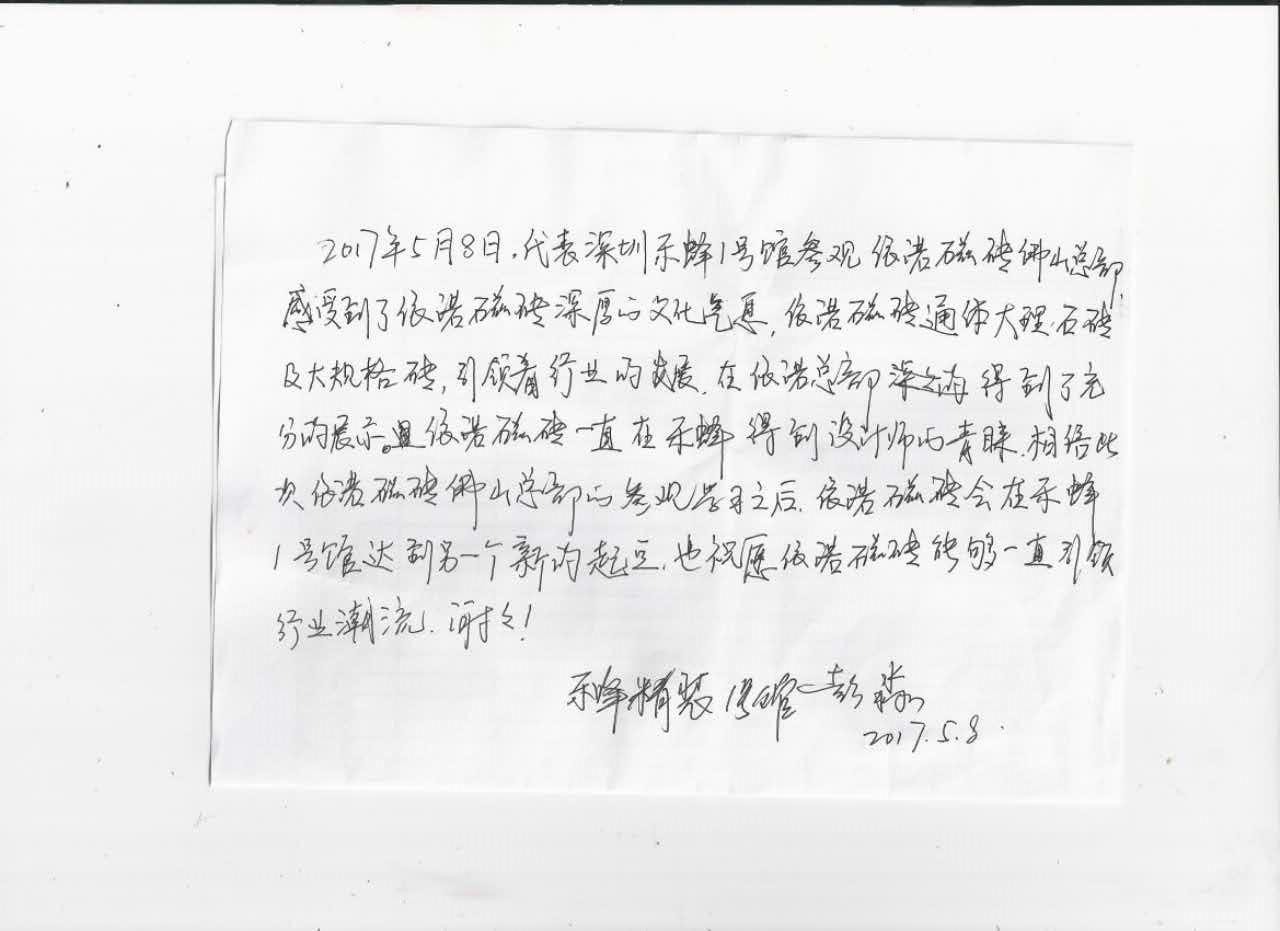 2017年5月8日,代表深圳禾蜂1号馆参观依诺磁砖佛山总部,
感受到了依诺磁砖深厚的文化气息,依诺磁砖通体大理石砖
及大规格砖,引领着行业的发展,在依诺总部 得到了充
分的展示。且依诺磁砖一直在禾蜂得到设计师的青睐.相信此
次依诺磁砖佛山总部的参观学习之后,依诺磁砖会在禾蜂
1号馆达到另一个新的起点,也祝愿依诺磁砖能够一直引领
行业潮流.谢谢!
禾蜂精装1号馆—彭淼
2017.5.8.